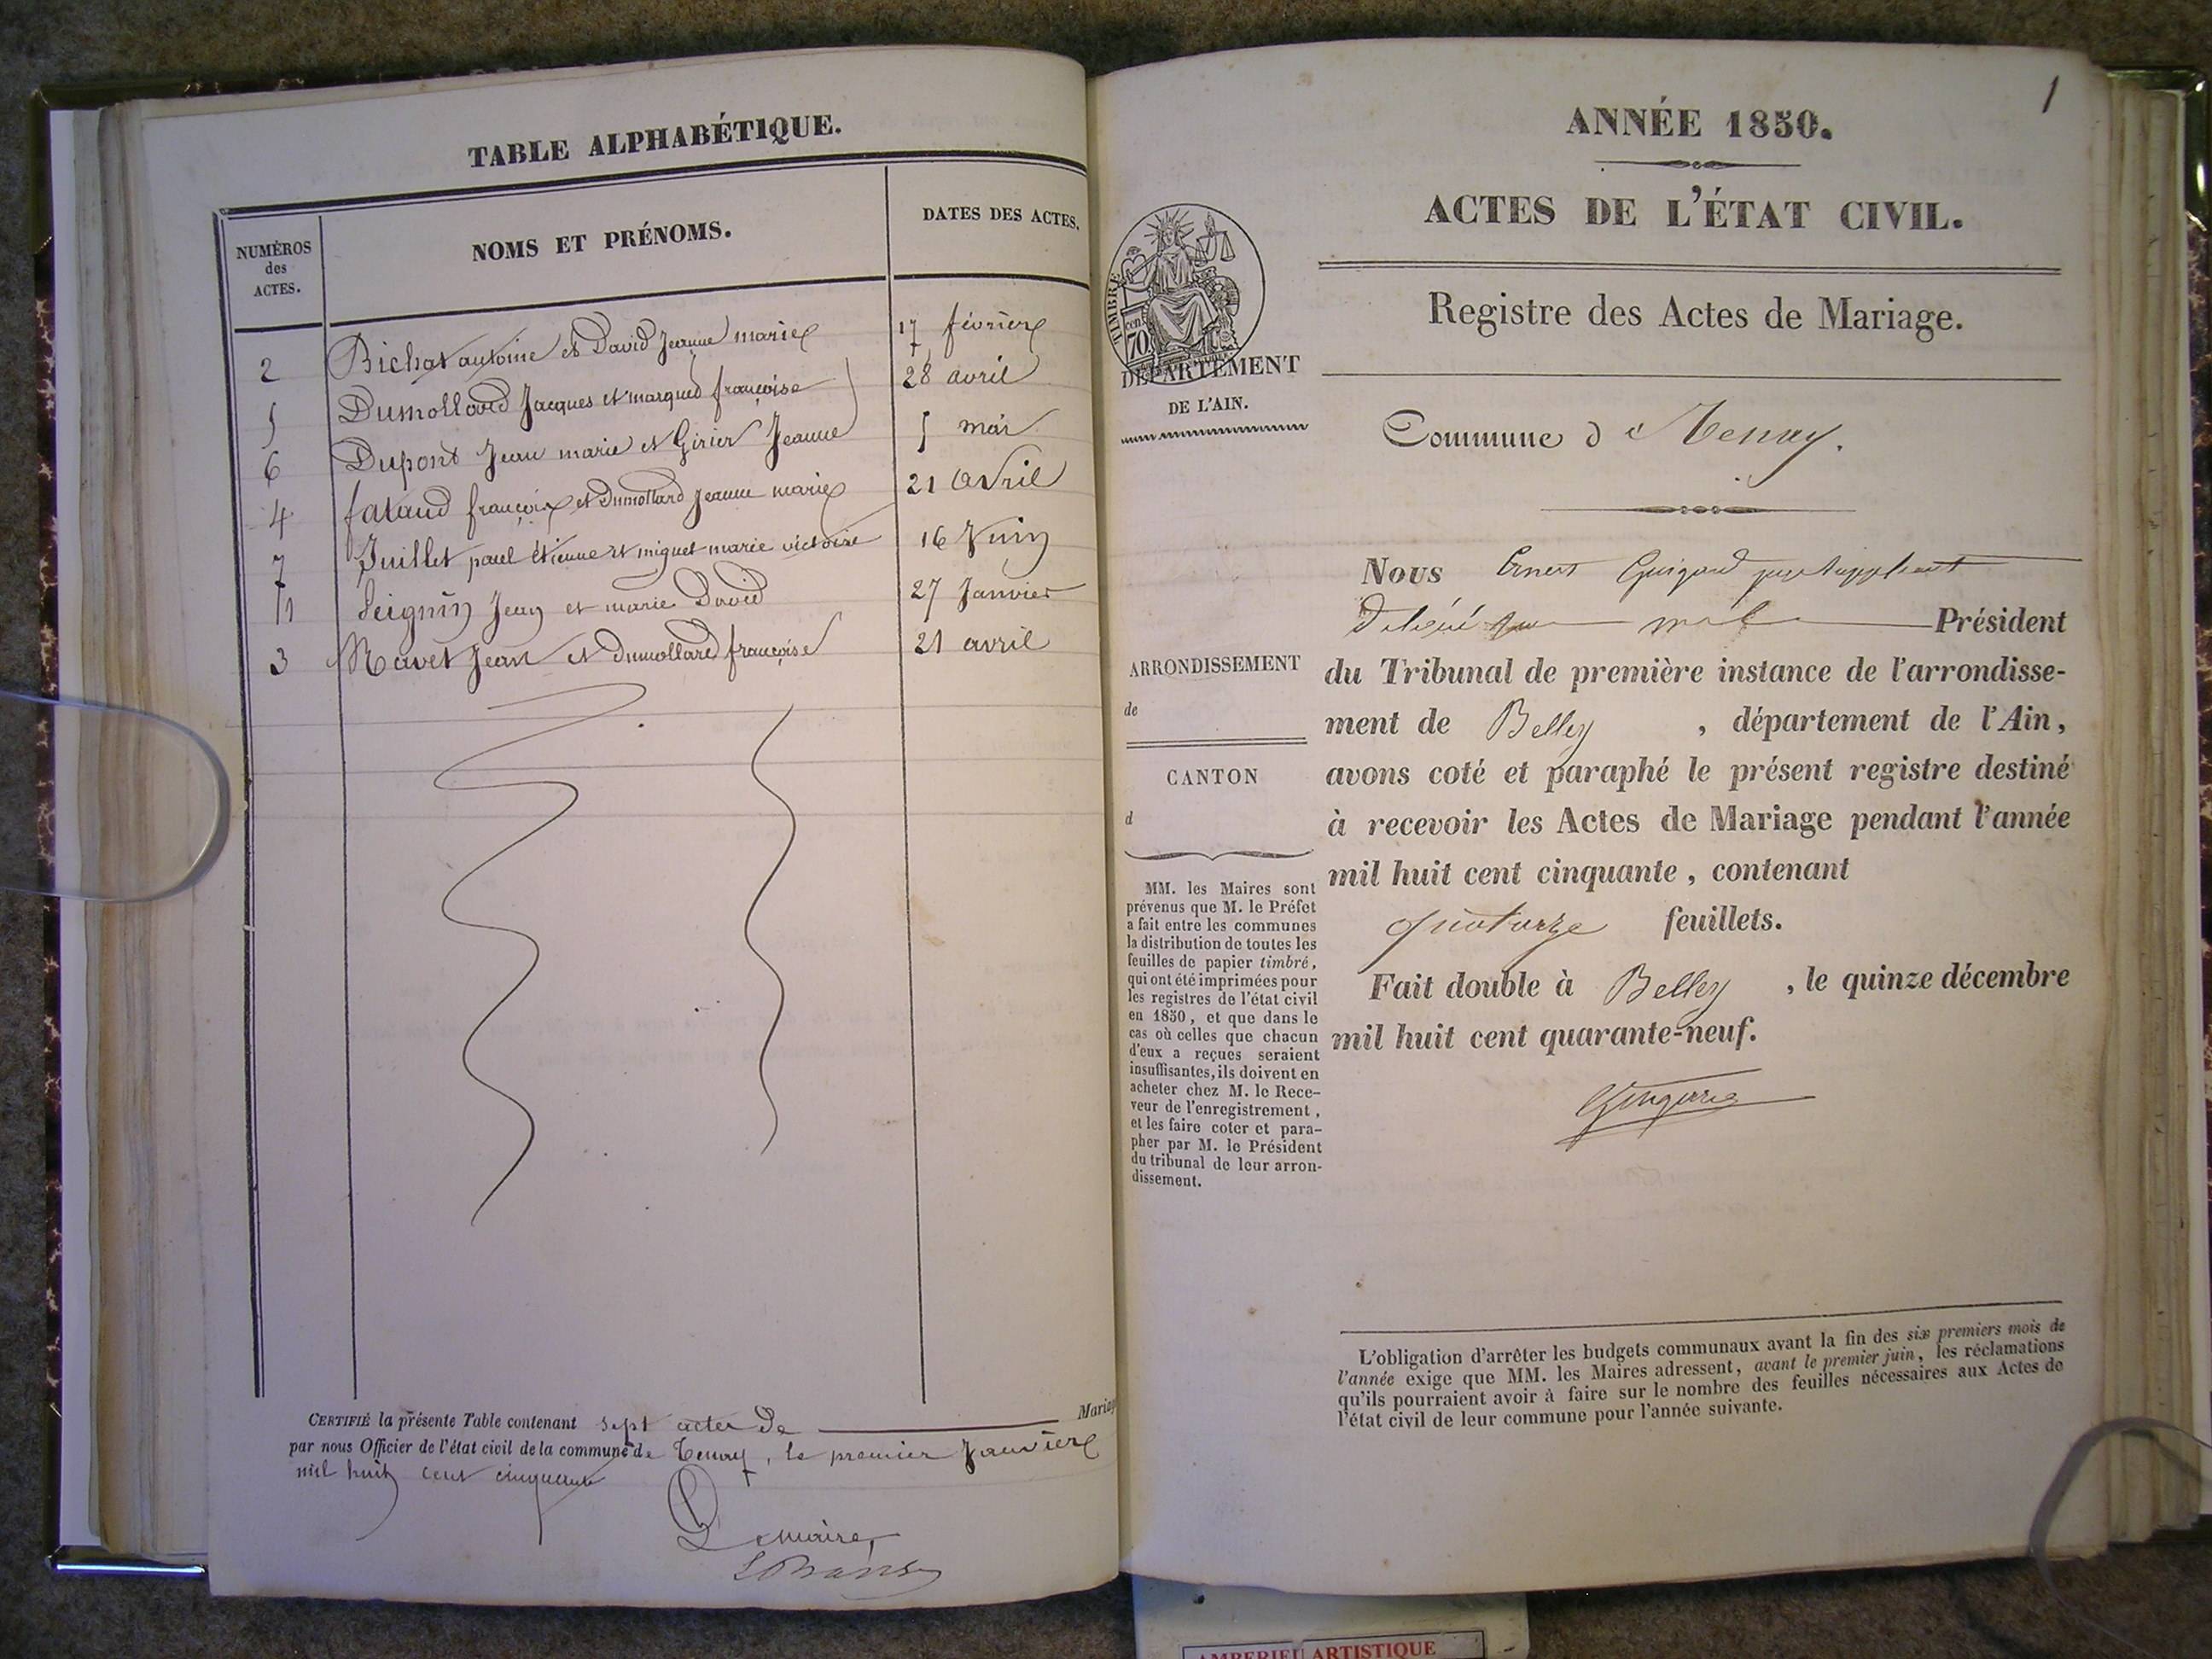 TABLE ALPHABÉTIQUE.
NUMÉROS
des
ACTES.
NOMS ET PRÉNOMS.
DATES DES ACTES.
2 Bichat antoine et David Jeanne marie 17 février
5 Dumollard Jacques et françoise 28 avril
6 Dupont Jean marie et Girier Jeanne 5 mai
4 françois et Dumollard Jeanne marie 21 avril
7 Juillet paul étienne et miguet marie victoire 16 Juin
1 Jean et marie David 27 Janvier
3 Jean et Dumollard françoise 21 avril
CERTIFIÉ la présente Table contenant sept actes de Mariage
par nous Officier de l'état civil de la commune de Tenay, le premier Janvier
mil huit cent cinquante
Le maire,
1
ANNÉE 1850.
ACTES DE L'ÉTAT CIVIL.
Registre des Actes de Mariage.
TIMBRE
70
cen.
DÉPARTEMENT
DE L'AIN.
Commune de Tenay.
Nous Ernest Guigard juge suppléant
Délégué par Président
du Tribunal de première instance de l'arrondisse-
ment de Belley , département de l'Ain,
avons coté et paraphé le présent registre destiné
à recevoir les Actes de Mariage pendant l'année
mil huit cent cinquante, contenant
quatorze feuillets.
Fait double à Belley , le quinze décembre
mil huit cent quarante-neuf.
ARRONDISSEMENT
de
CANTON
d
MM. les Maires sont
prévenus que M. le Préfet
a fait entre les communes
la distribution de toutes les
feuilles de papier timbré,
qui ont été imprimées pour
les registres de l'état civil
en 1850, et que dans le
cas où celles que chacun
d'eux a reçues seraient
insuffisantes, ils doivent en
acheter chez M. le Rece-
veur de l'enregistrement,
et les faire coter et para-
pher par M. le Président
du tribunal de leur arron-
dissement.
L'obligation d'arrêter les budgets communaux avant la fin des six premiers mois de
l'année exige que MM. les Maires adressent, avant le premier juin, les réclamations
qu'ils pourraient avoir à faire sur le nombre des feuilles nécessaires aux Actes de
l'état civil de leur commune pour l'année suivante.
AMBERIEU ARTISTIQUE